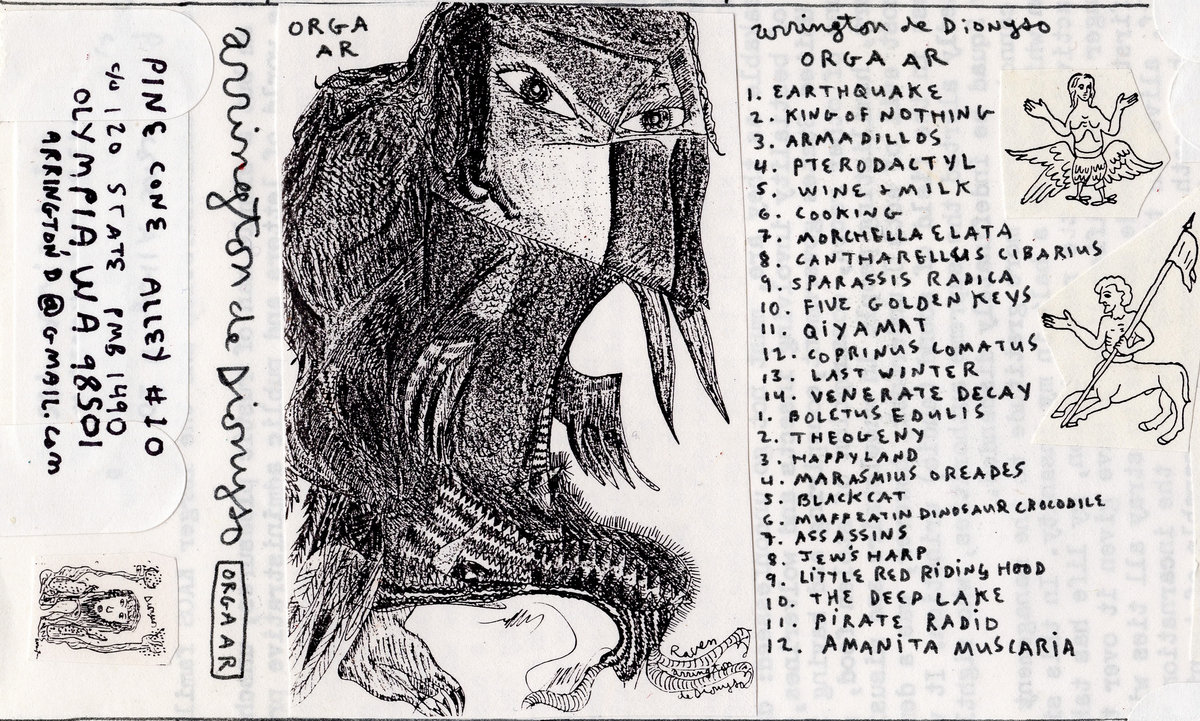 PINE CONE ALLEY #20
c/o 120 STATE PMB 1490
OLYMPIA, WA 98501
ARRINGTON D @ GMAIL.COM
arrington de Dionyso
ORGA AR
ORGA
AR
Raven
arrington
de Dionyso
arrington de Dionyso
ORGA AR
1. EARTHQUAKE
2. KING OF NOTHING
3. ARMADILLOS
4. PTERODACTYL
5. WINE + MILK
6. COOKING
7. MORCHELLA ELATA
8. CANTHARELLUS CIBARIUS
9. SPARASSIS RADICA
10. FIVE GOLDEN KEYS
11. QIYAMAT
12. COPRINUS COMATUS
13. LAST WINTER
14. VENERATE DECAY
1. BOLETUS EDULIS
2. THEOGENY
3. HAPPYLAND
4. MARASMIUS OREADES
5. BLACKCAT
6. MUFFEATIN DINOSAUR CROCODILE
7. ASSASSINS
8. JEW'S HARP
9. LITTLE RED RIDING HOOD
10. THE DEEP LAKE
11. PIRATE RADIO
12. AMANITA MUSCARIA